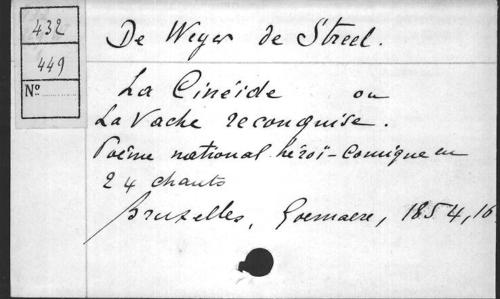 432
449
No
De Weyer de Streel.
La Cinéide ou
La Vache reconquise.
Poème national héroï-comique en
24 chants
Bruxelles, Goemaere, 1854, 16